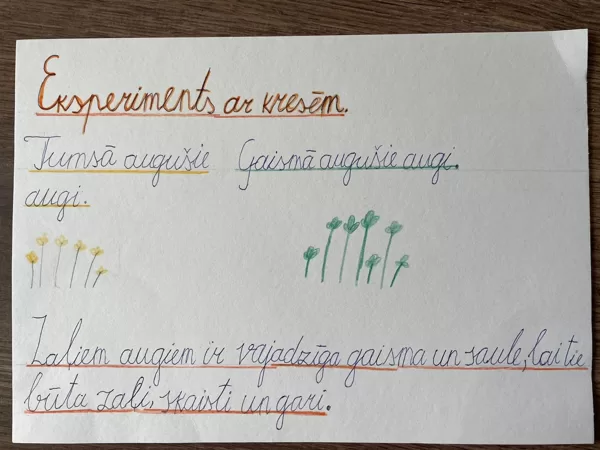 Eksperiments ar kresēm.
Tumsā augušie
augi.
Gaismā augušie augi.
Zaļiem augiem ir vajadzīga gaisma un saule, lai tie
būtu zaļi, skaisti un gari.